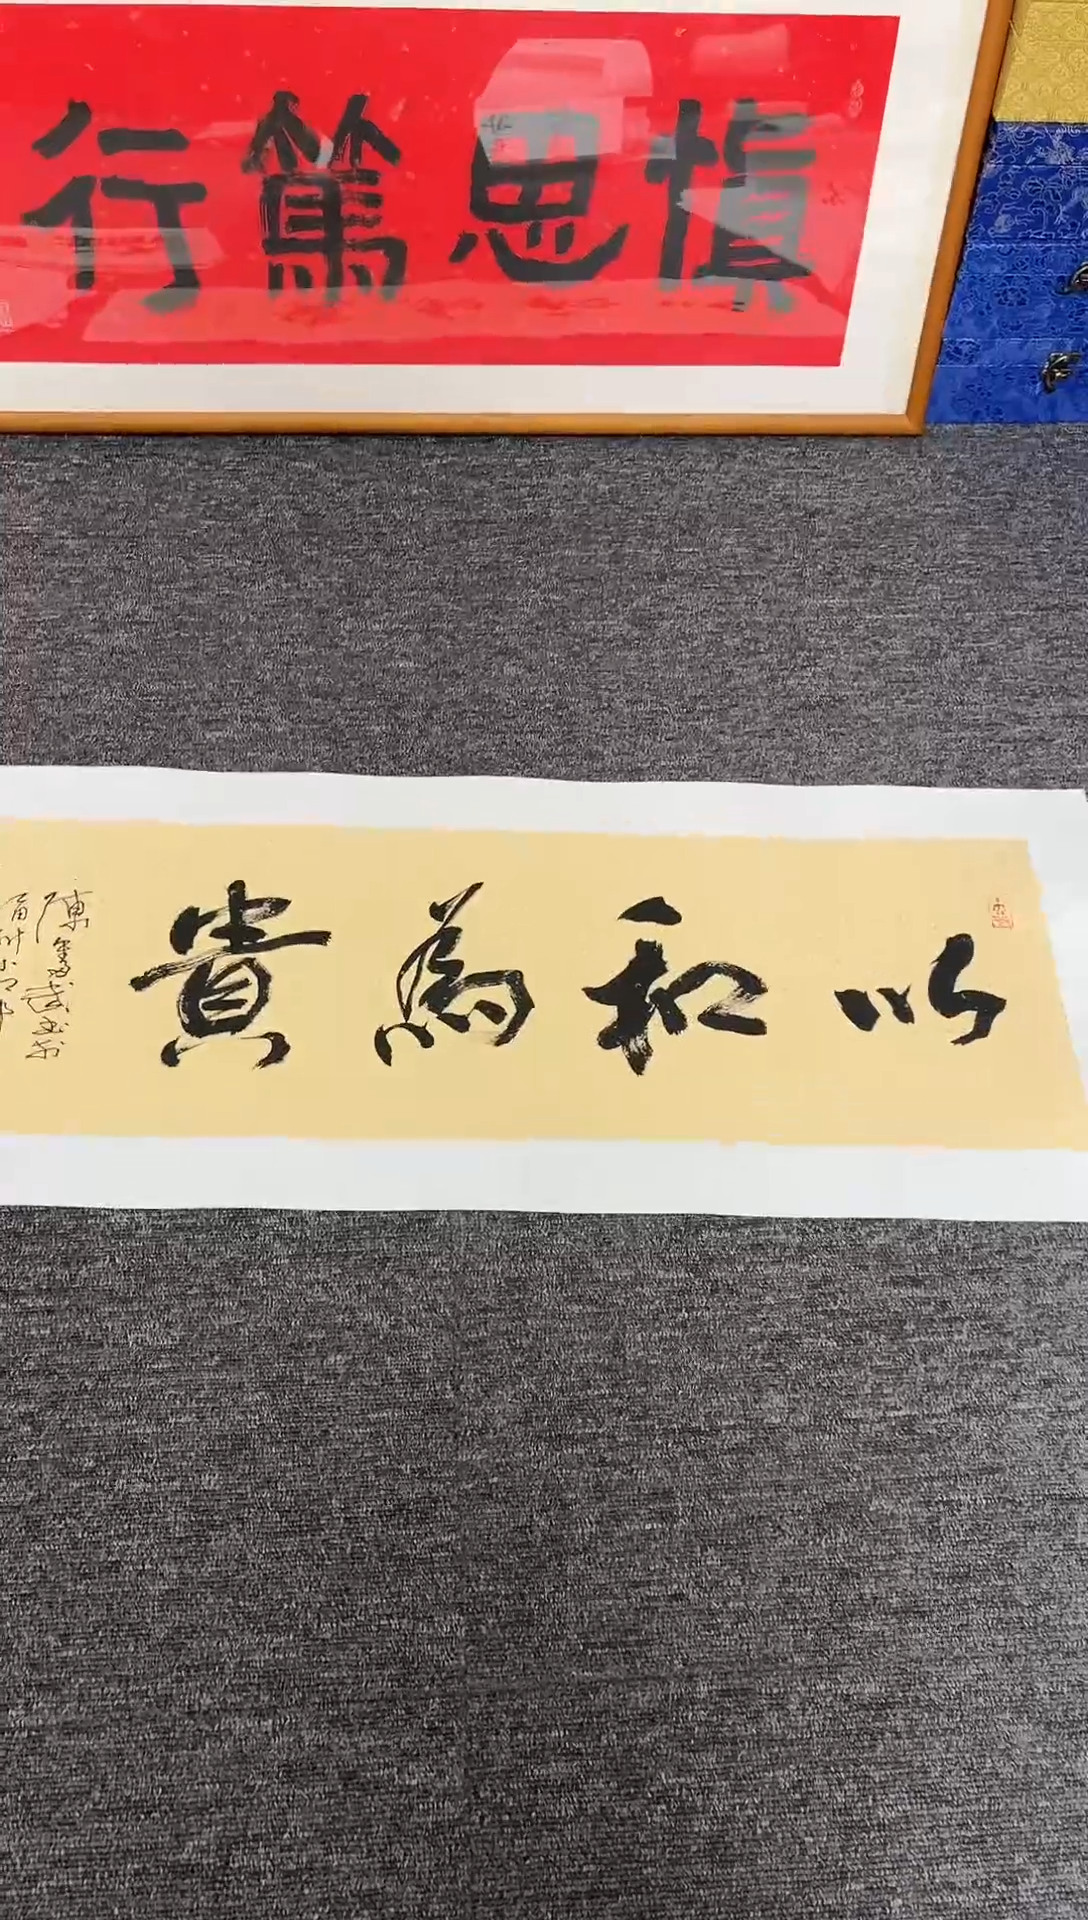 慎思篤行
以和為貴